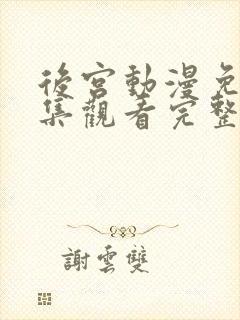 後宮動漫免
集觀看完整
謝雲雙